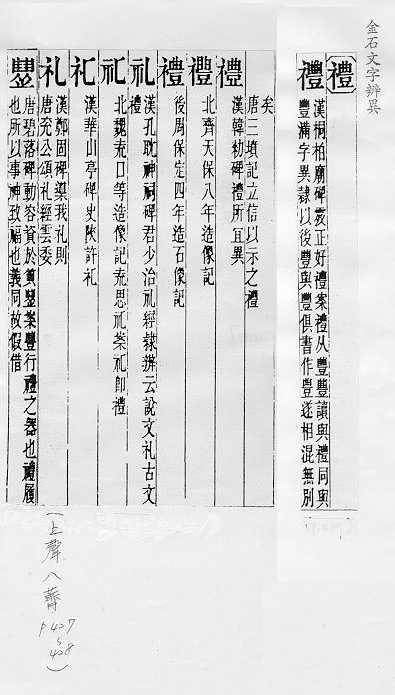 金石文字辨異
禮
禮 漢桐柏廟碑㢤正好禮案禮从豊豊讀與禮同與
豐滿字異隸以後豐與豊俱書作豊遂相混無別
矣
唐三墳記立信以示之禮
禮 漢韓勑碑禮所宜異
禮 北齊天保八年造像記
禮 後周保定四年造石像記
礼 漢孔耽神祠碑君少治礼經隸辨云說文礼古文
禮
北魏充口等造像記充思礼案礼即禮
漢華山亭碑史陜許礼
礼 漢鄭固碑導我礼則
唐兖公頌礼經雲委
豊 唐碧落碑動容資於典豊案豊行禮之器也禮履
也所以事神致福也義同故假借
(上聲八薺
p427
428)